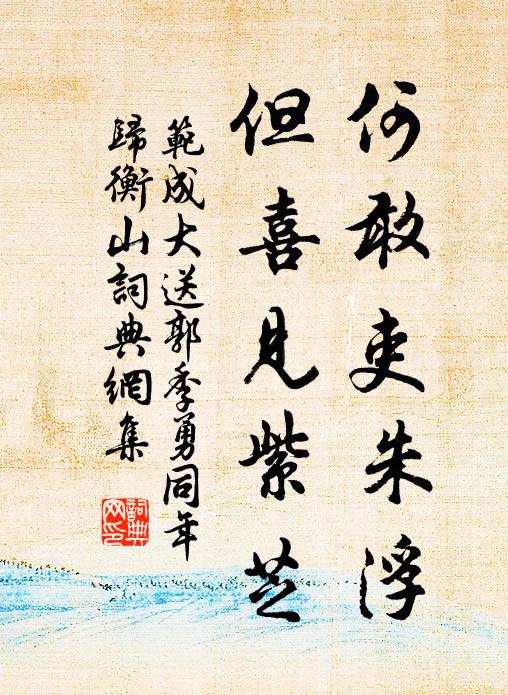 何敢吏朱浮
但喜見紫芝
範成大送郭季勇同年
歸衡山詞典網集
詞典
网印